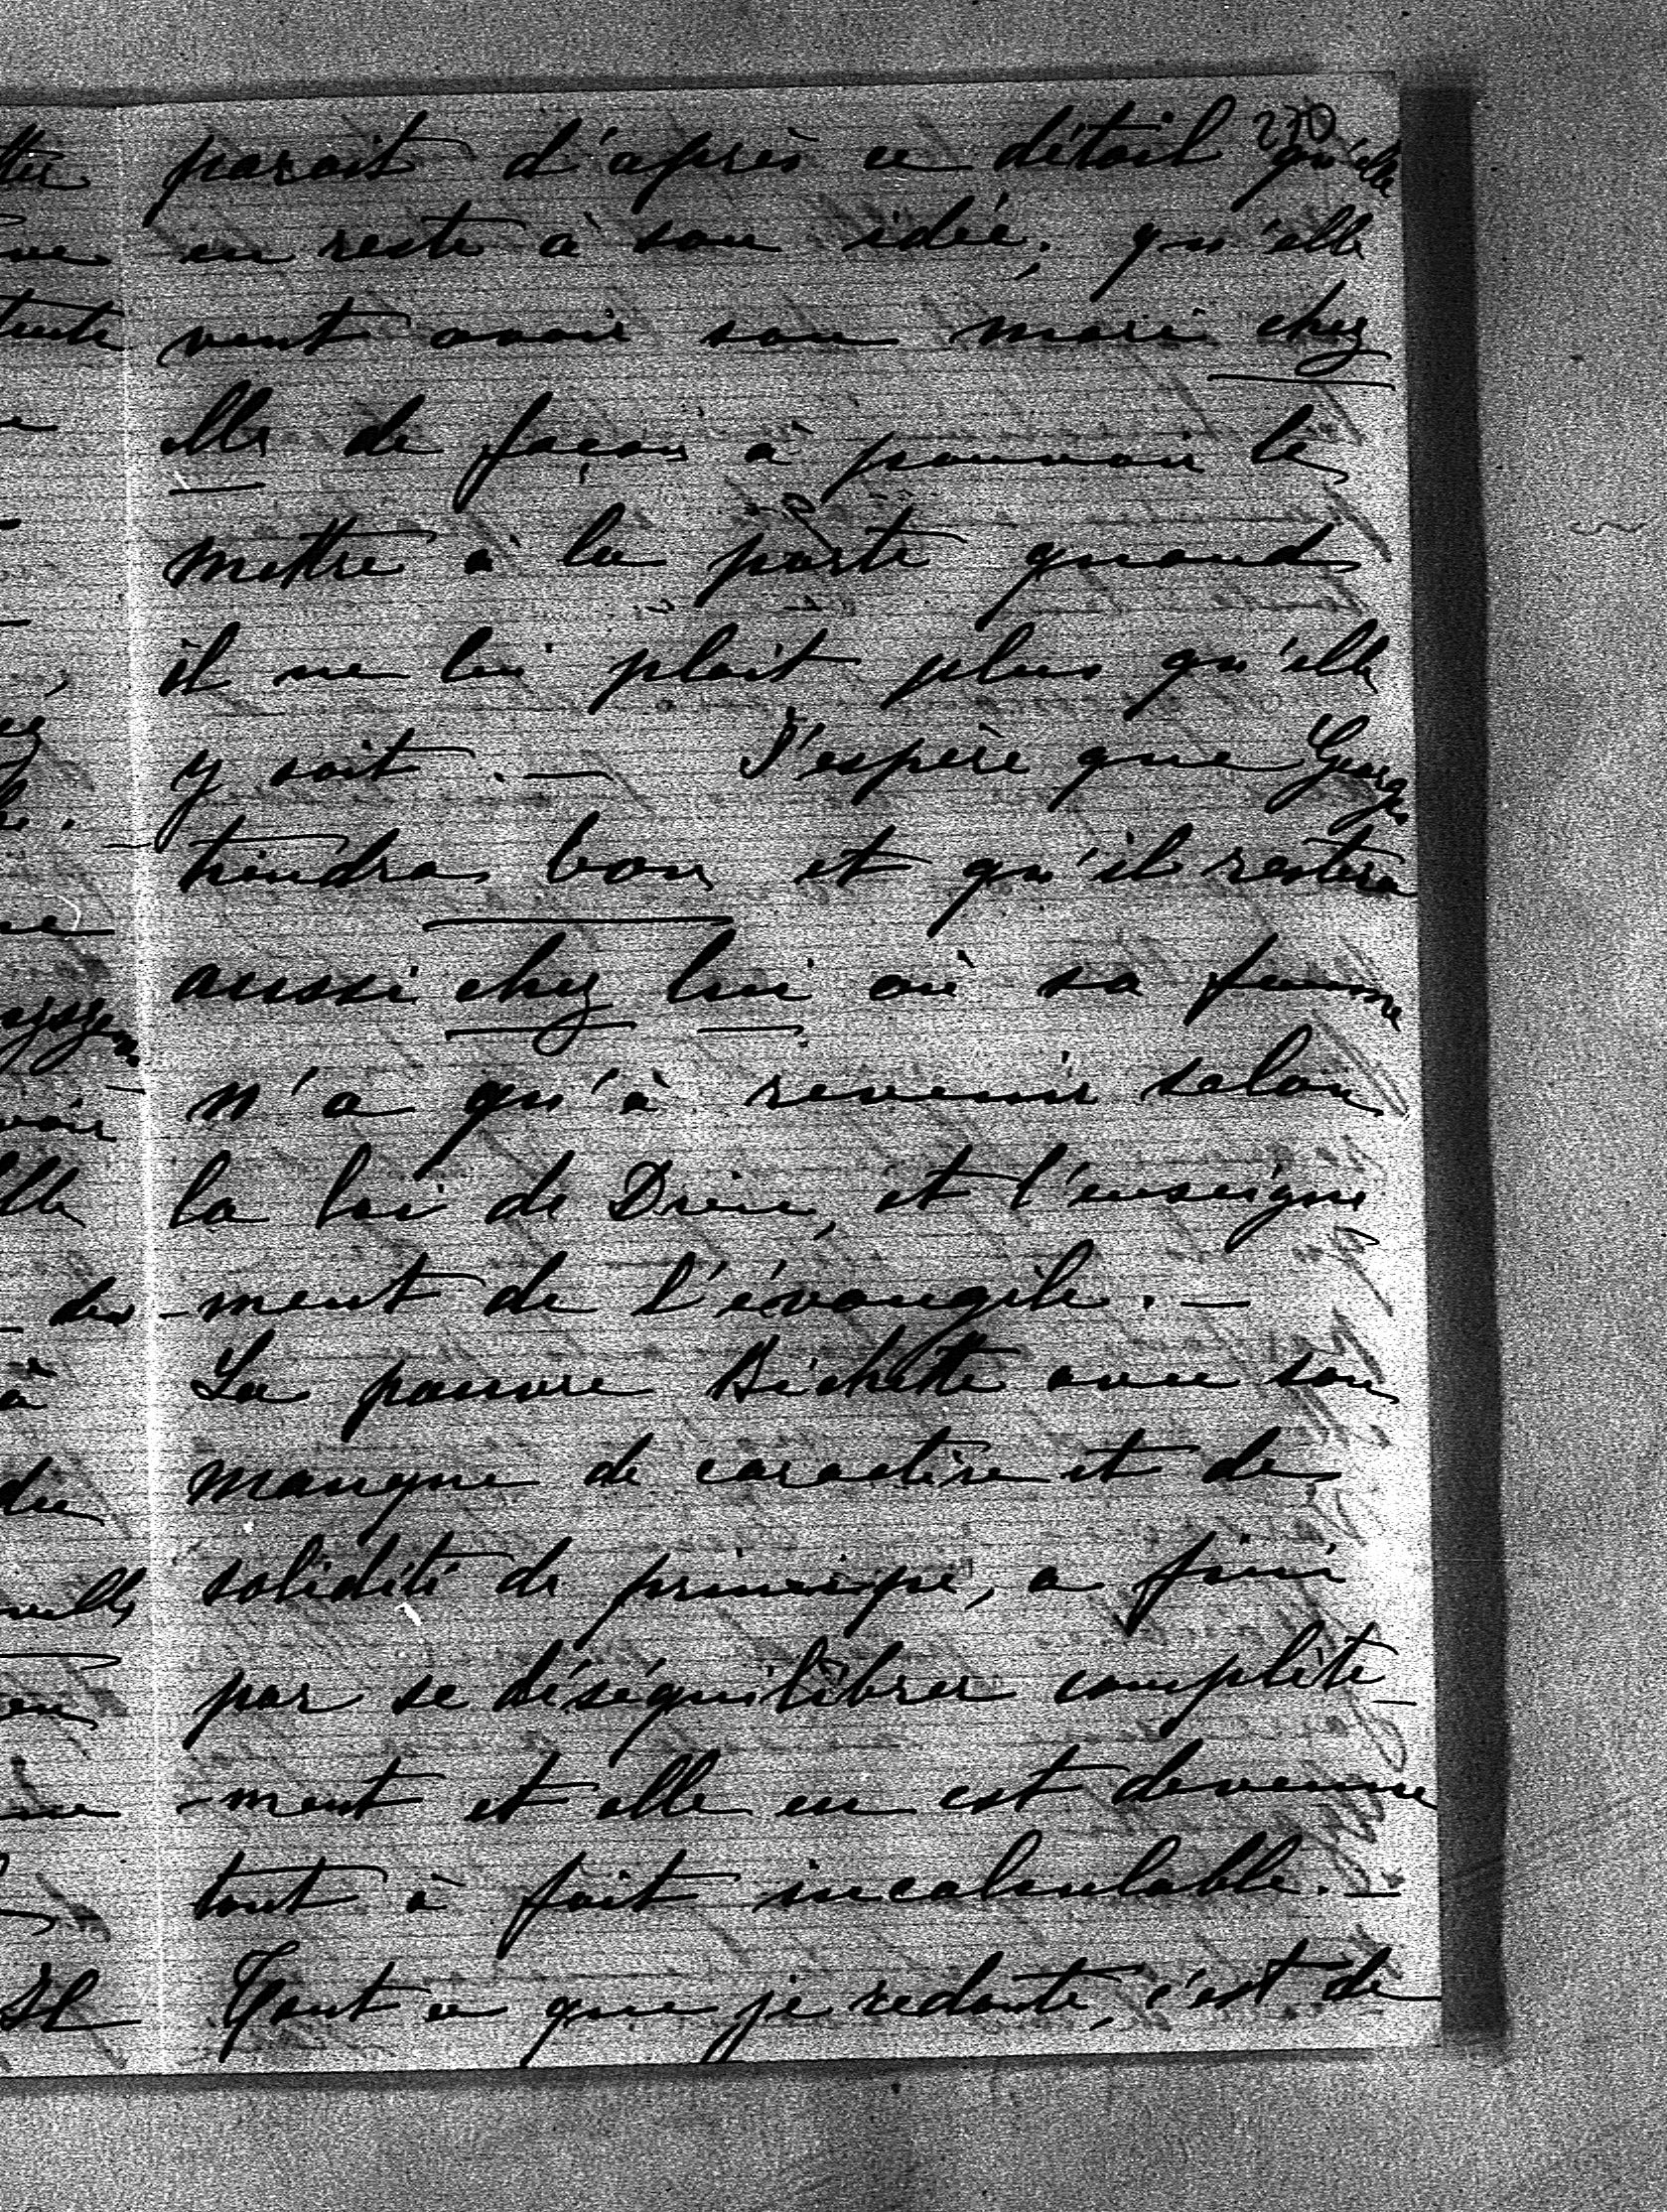 270
parait d'après ce détail qu'elle
en reste à son idée, qu'elle
veut avoir son mari chez
elle de façon à pouvoir le
mettre à la porte quand
il ne lui plait plus qu'elle
y soit. — J'espère que Georges
tiendra bon et qu'il restera
aussi chez lui où sa femme
n'a qu'à revenir selon
la loi de Dieu, et l'enseigne
-ment de l'évangile. —
La pauvre Bichette avec son
manque de caractère et de
solidité de principe, a fini
par se déséquilibrer complète-
-ment et elle en est devenue
tout à fait incalculable. —
Tout ce que je redoute, c'est de